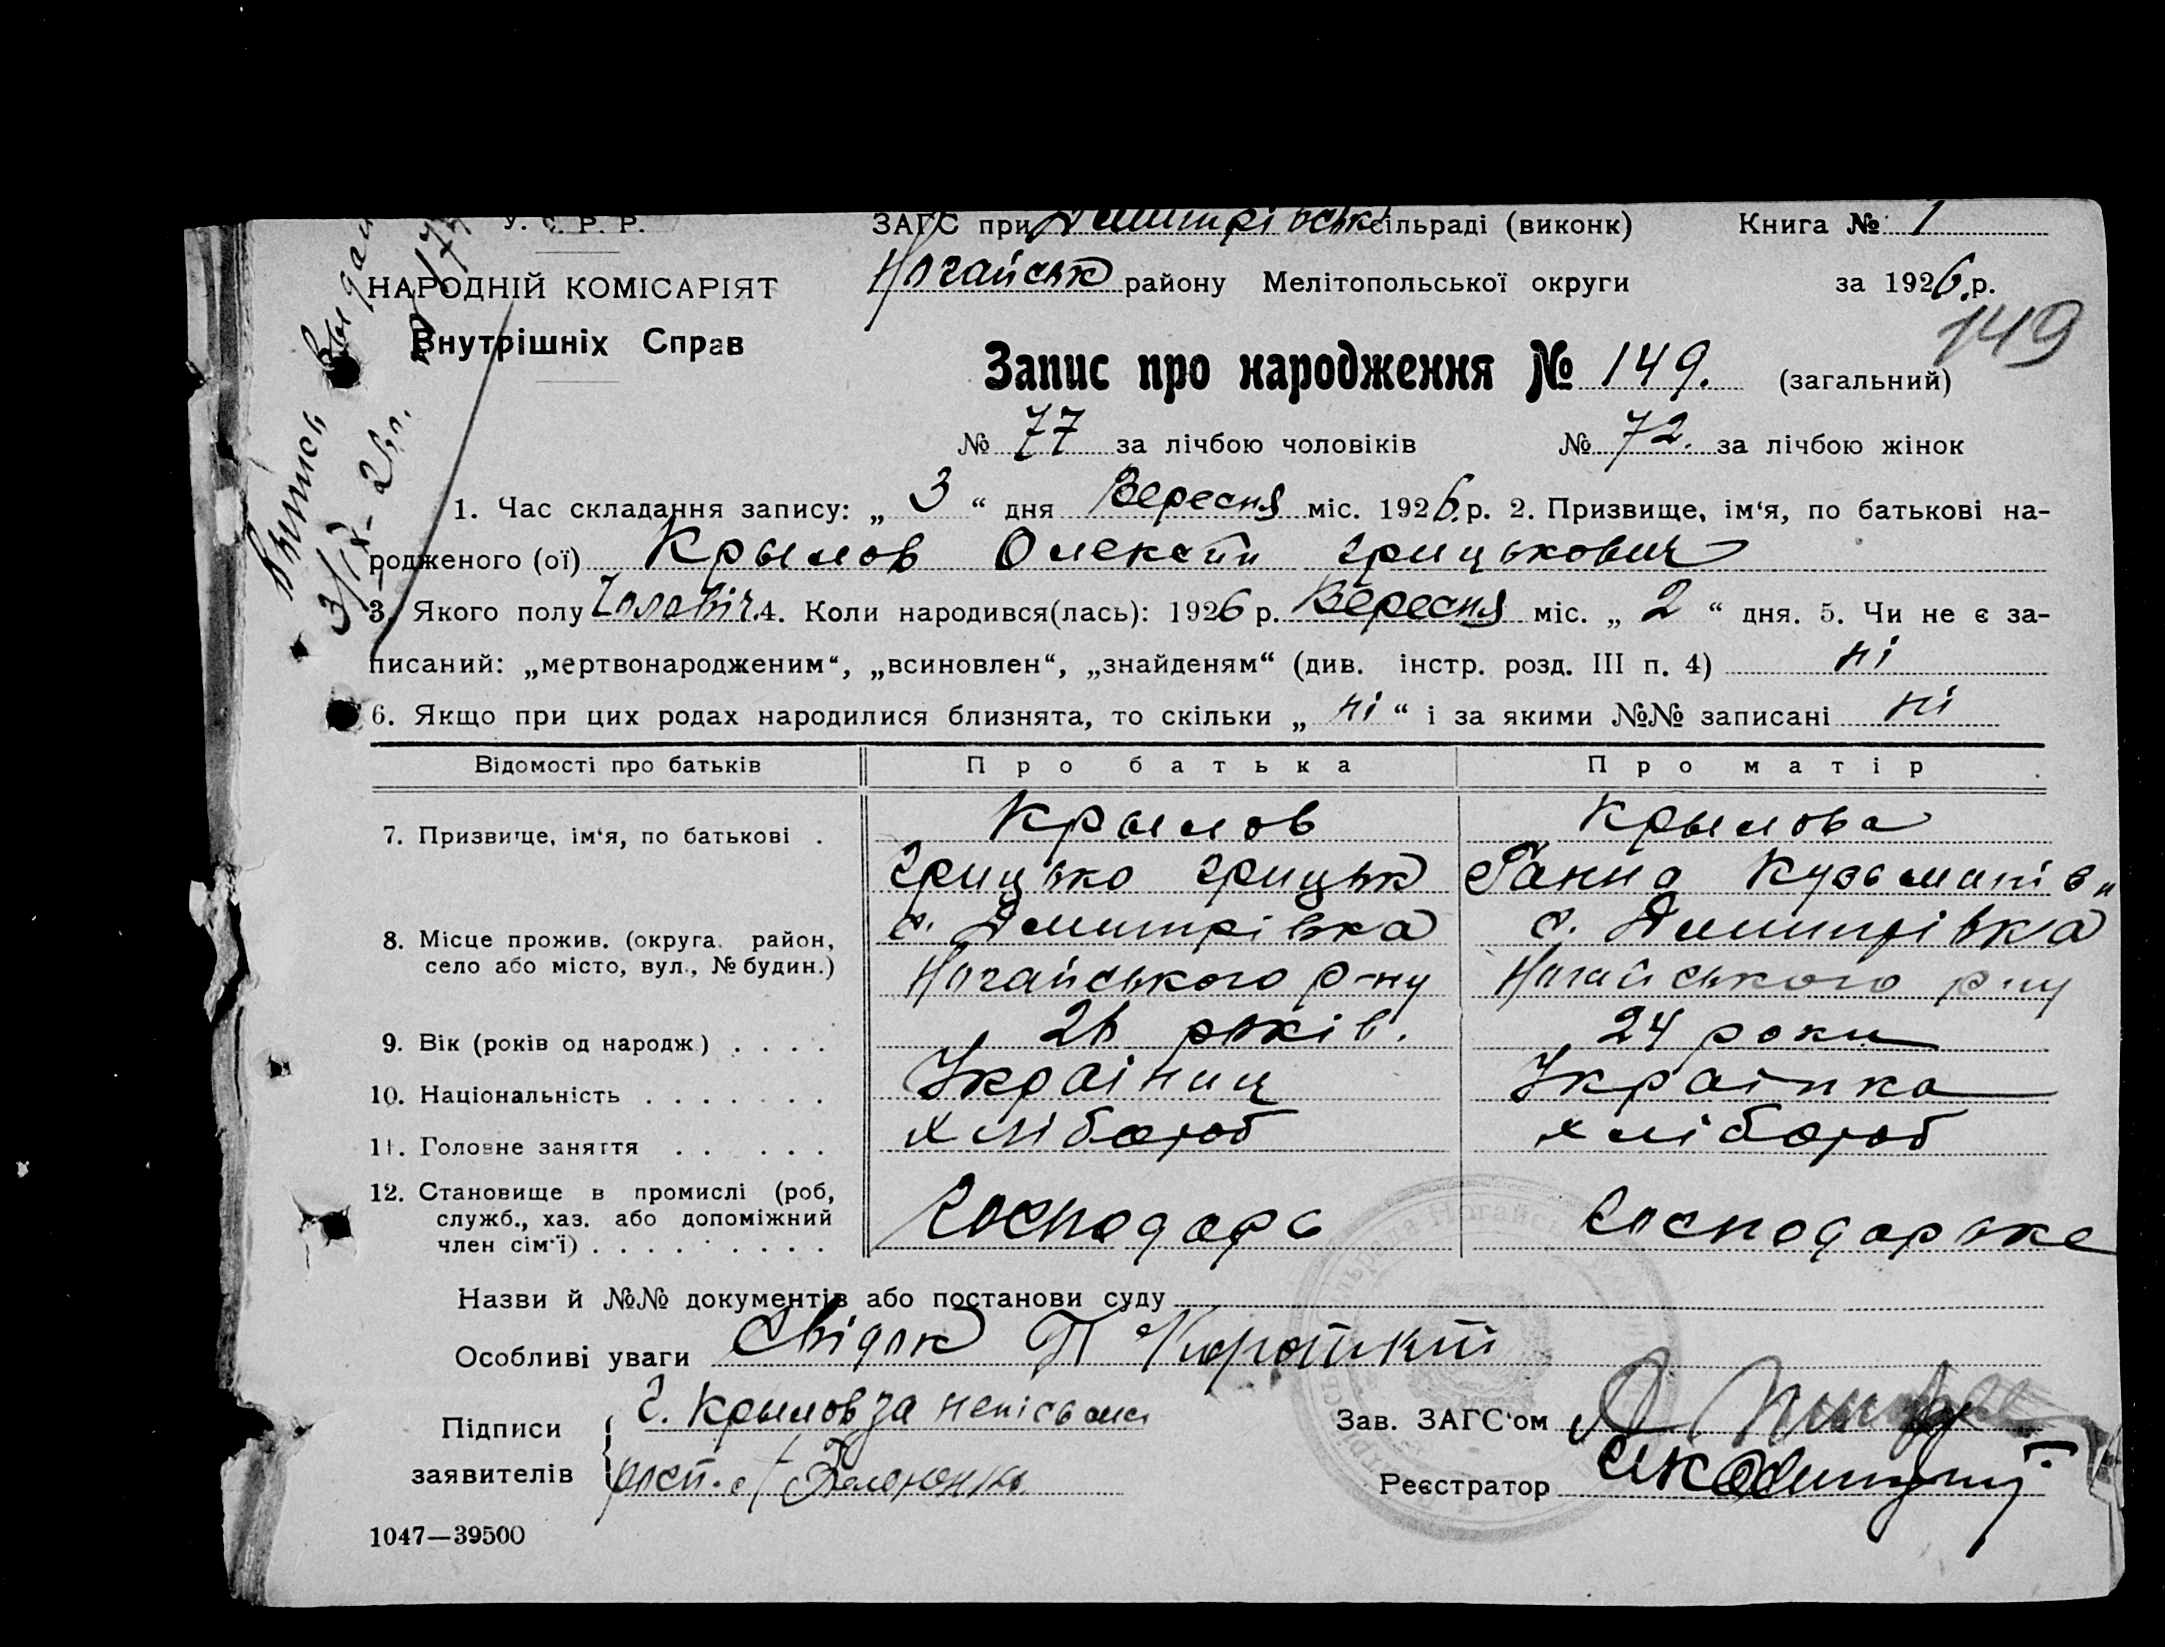 У. С. Р. Р.
НАРОДНІЙ КОМІСАРІЯТ
Внутрішніх Справ
ЗАГС при Дмитрівськ сільраді (виконк) Книга № 1
Ногайськ району Мелітопольської округи за 1926 р.
149
Запис про народження № 149. (загальний)
№ 77 за лічбою чоловіків № 72. за лічбою жінок
1. Час складання запису: „ 3 “ дня Вересня міс. 1926 р. 2. Призвище, ім‘я, по батькові на-
родженого (ої) Крылов Олексій Грицькович
3. Якого полу Чоловіч. 4. Коли народився(лась): 1926 р. Вересня міс. „ 2 “ дня. 5. Чи не є за-
писаний: „мертвонародженим“, „всиновлен“, „знайденям“ (див. інстр. розд. III п. 4) ні
6. Якщо при цих родах народилися близнята, то скільки „ ні “ і за якими №№ записані ні
Відомості про батьків Про батька Про матір
7. Призвище, ім‘я, по батькові . Крылов Крылова
Грицько Грицьк Ганна Кузьматівн
8. Місце прожив. (округа, район, с. Дмитрівка с. Дмитрівка
село або місто, вул., № будин.) Ногайського р-ну Ногайського р-ну
9. Вік (років од народж.) . . . . 26 років. 24 роки
10. Національність . . . . . . . Україниц Українка
11. Головне заняття . . . . . . хлібороб хлібороб
12. Становище в промислі (роб,
служб., хаз. або допоміжний Господарь Господарке
член сім‘ї) . . . . . . . . .
Назви й №№ документів або постанови суду
Особливі уваги Свідок П
Підписи Г. Крылов за
заявителів
Зав. ЗАГС‘ом
Реєстратор
1047—39500
Выпись выдан
3/IX-26г.